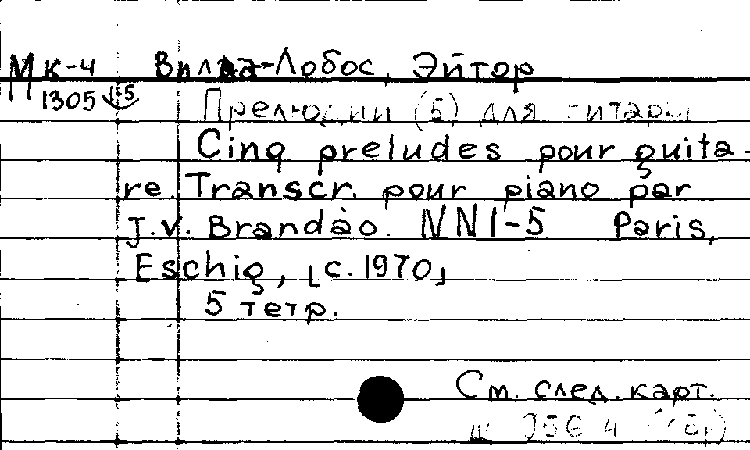 МК-4 Вилла-Лобос, Эйтор
1305 1-5
Прелюдии (5) для гитары
Cinq preludes pour guita-
re Transcr. pour piano par
J.V. Brandào. NN1-5 Paris,
Eschig, [c.1970]
5 тетр.
См. след. карт.